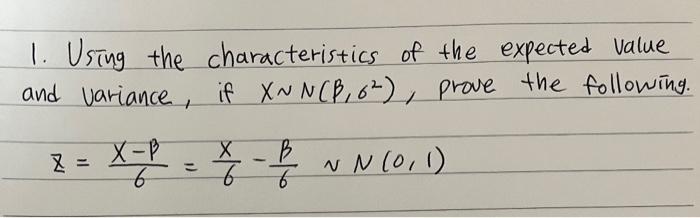 1. Using the characteristics of the expected value
and variance, if X~N(β,6²), prove the following.
Z = X-β/6 = X/6 - β/6 ~ N(0,1)